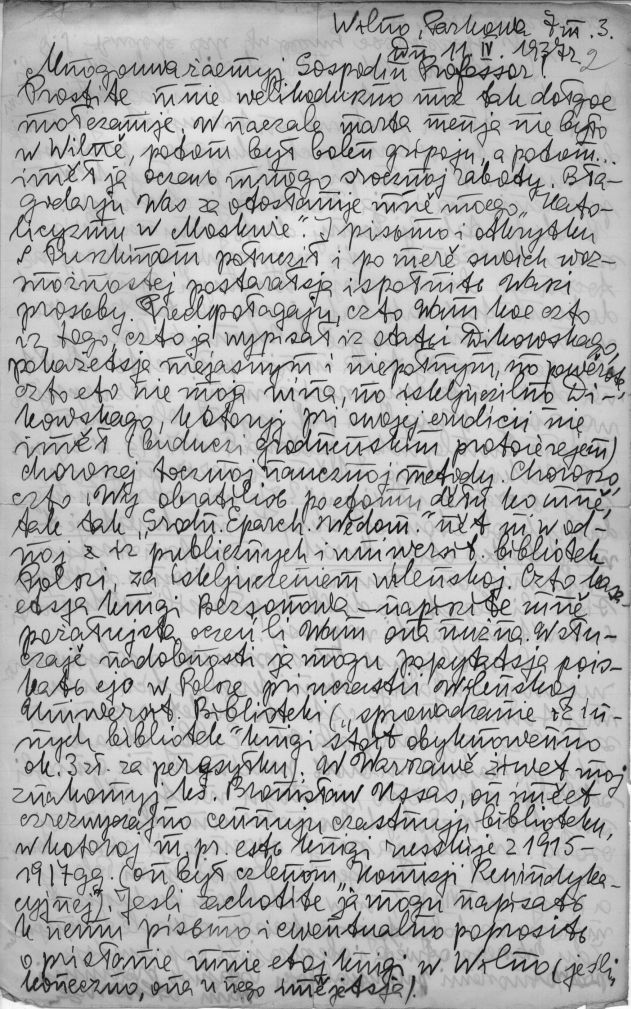 Wilno, Parkowa 7 m. 3.
Dn. 11 IV. 1937 r. 2
Mnogouważajemyj Gospodin Professor!
Prostite mnie welikoduszno moje tak dołgoe
mołczanije. W naczale marta menja nie było
w Wilně, potom był bolen gripoju, a potom...
imiěł ja oczeń mnogo srocznoj raboty. Bła-
godarju Was za otosłanije mně mojego „Kato-
licyzmu w Moskwie". I piśmo i otkrytku
s Puszkinom połucził i po měrě swoich woz-
możnostej postarałsja ispołnitь Waszi
prosьby. Predpołagaju, czto Wam koe czto
iz tego, czto ja wypisał iz statьi Dikowskago,
pokażetsja niejasnym i niepołnym, no powěrьte,
czto eto nie moja wina, no iskljucziteln Di-
kowskago, kotoryj pri swojej erudicii nie
iměł (buduczi grodnenskim protoierejem)
choroszej tocznoj naucznoj metody. Choroszo,
czto Wy obratiliś po etomu dělu ko mně,
tak kak „Grodn. Eparch. Wědom." nět ni w od-
noj z iz publicznych i uniwersit. bibliotek
Polszi, za iskljuczeniem wilenskoj. Czto kasa-
etsja knigi Bezsonowa – napiszite mně
pożałujsta, oczeń li Wam ona nużna. W słu-
czajě nadobnosti ja mogu popytatsja pois-
katь ejo w Polszě pri uczastii Wilenskoj
Uniwersyt. Biblioteki („sprowadzanie z in-
nych bibliotek" knigi stoit obyknowenno
ok. 3 zł. za peresyłku). W Warszawě żiwet moj
znakomyj ks. Bronisław Ussas, on iměet
czrezwyczajno cennuju czastnuju biblioteku,
w kotoroj m. pr. estь knigi russkije z 1915–
1917 gg. (on był członom Komisji Rewindyka-
cyjnej). Jesli zachotite, ja mogu napisatь
k nemu pisьmo i ewentualno poprositь
o prisłanie mnie etoj knigi w Wilno (jesli,
koneczno, ona u nego imějetsja).